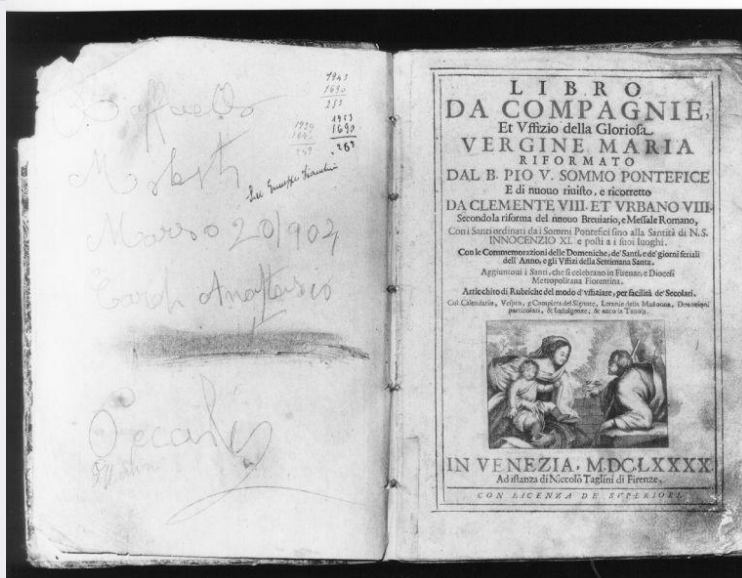 Raffaello
1943
1690
253
1953
1690
263
Marzo 20/904
LIBRO
DA COMPAGNIE,
Et Vffizio della Gloriosa
VERGINE MARIA
RIFORMATO
DAL B. PIO V. SOMMO PONTEFICE
E di nuouo riuisto, e ricorretto
DA CLEMENTE VIII. ET VRBANO VIII.
Secondo la riforma del nuouo Breuiario, e Messale Romano,
Con i Santi ordinati da i Sommi Pontefici sino alla Santità di N.S.
INNOCENZIO XI. e posti a i suoi luoghi.
Con le Commemorazioni delle Domeniche, de' Santi, e de' giorni feriali
dell'Anno, e gli Vffizi della Settimana Santa.
Aggiuntoui i Santi, che si celebrano in Firenze, e Diocesi
Metropolitana Fiorentina.
Arricchito di Rubriche del modo d'vffiziare, per facilità de' Secolari.
Col Calendario, Vespro, e Compieta del Signore, Letanie della Madonna, Deuozioni
particolari, & Indulgenze, & anco la Tauola.
IN VENEZIA, M.DC.LXXXX.
Ad istanza di Niccolò Taglini di Firenze,
CON LICENZA DE SVPERIORI.